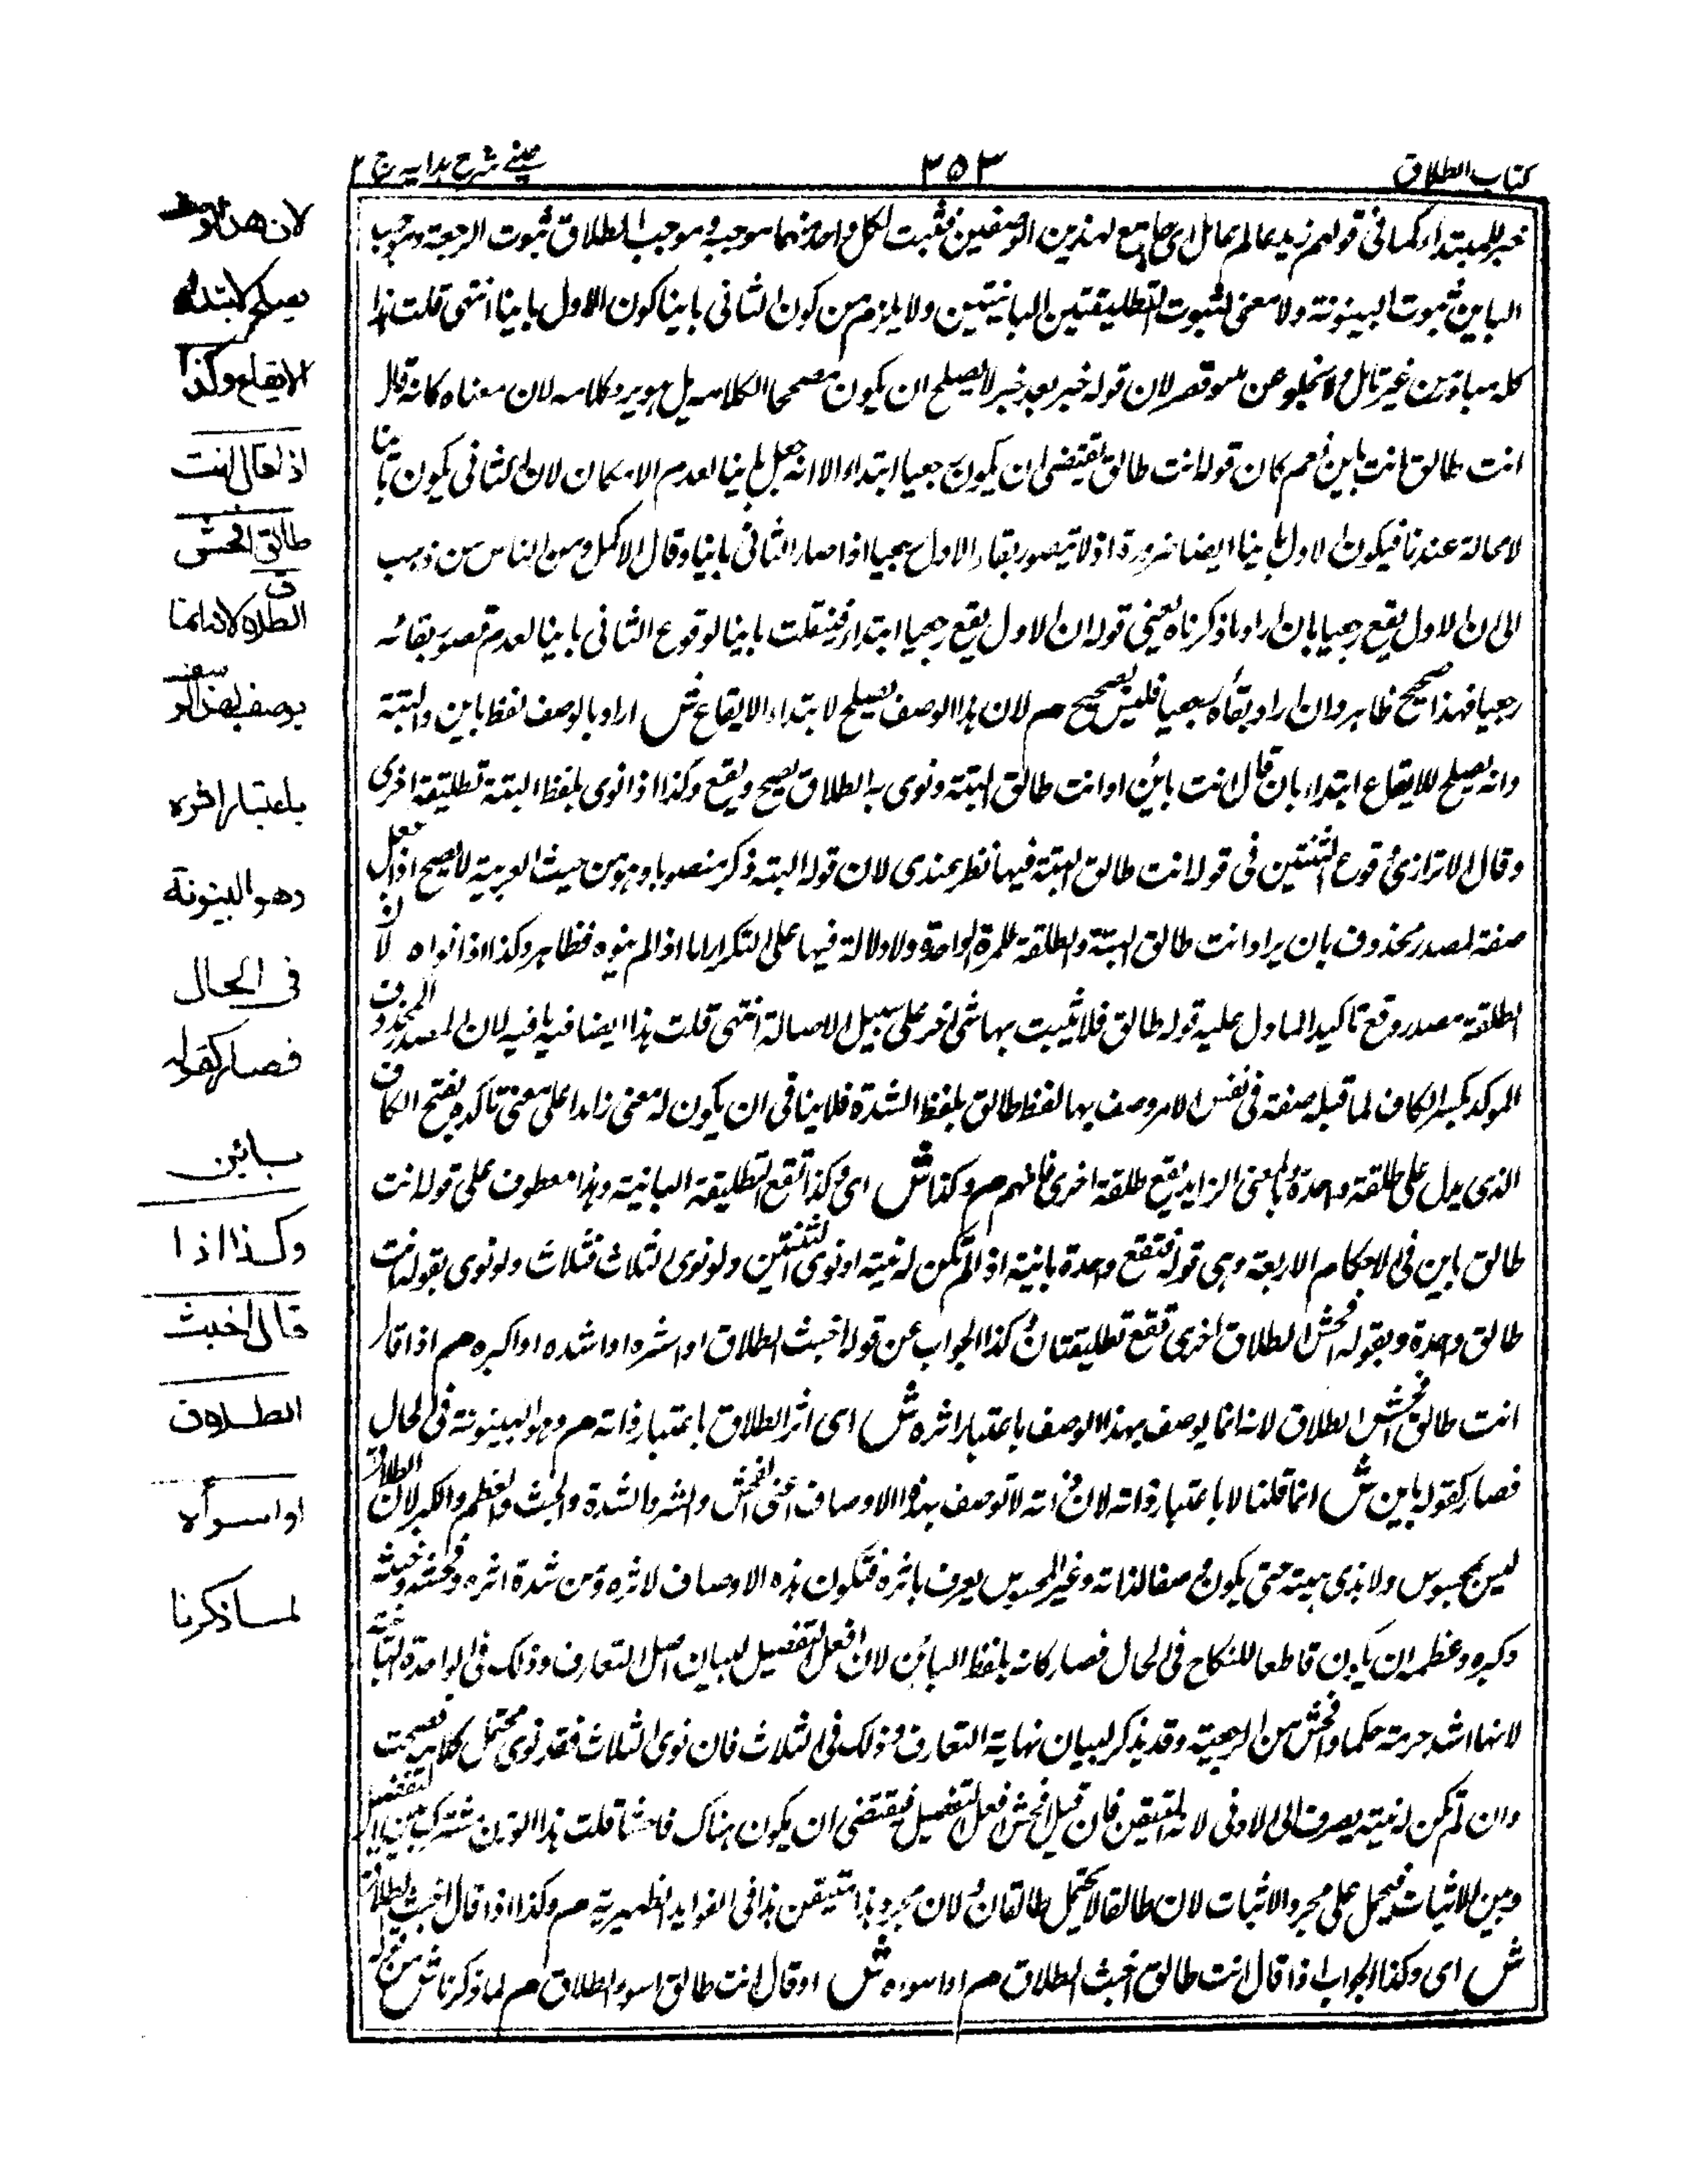 كتاب الطلاق
٣٥٣
عينى شرح هدايه ج ٢
خبر للمبتدا كما فى قولهم زيد عالم عامل اى جامع لهذين الوصفين فثبت لكل واحد منهما موجبه وموجب الطلاق ثبوت الرجعة وموجب
الباين ثبوت البينونة ولا معنى لثبوت التطليقتين البانيتين ولا يلزم من كون الثانى باينا كون الاول باينا انتهى قلت هذا
كله مبادرة من غير تامل ولا يخلو عن قصر لان قوله خبر بعد خبر لا يصلح ان يكون مصححا لكلامه بل هو يرد كلامه لان معناه كانه قال
انت طالق انت باين نعم كان قوله انت طالق يقتضى ان يكون رجعيا ابتداء الا انه جعل باينا لعدم الامكان لان الثانى يكون باينا
لا محالة عندنا فيكون الاول باينا ايضا ضرورة اذ لا يتصور بقاء الاول رجعيا اذا صار الثانى باينا وقال الاكمل ومن الناس من ذهب
الى ان الاول يقع رجعيا بان اراد ما ذكرناه يعنى قوله ان الاول يقع رجعيا ابتداء فينقلب باينا لوقوع الثانى باينا لعدم تصور بقائه
رجعيا فهذا صحيح ظاهر وان اراد بقاءه رجعيا فليس بصحيح م لان هذا الوصف يصلح لابتداء الايقاع ش اراد بالوصف لفظ باين والبتة
وانه يصلح للايقاع ابتداء بان قال انت بائن او انت طالق البتة ونوى به الطلاق يصح ويقع وكذا اذا نوى بلفظ البتة تطليقة اخرى
وقال الاترازى وقوع الثنتين فى قوله انت طالق البتة فيها نظر عندى لان قوله البتة ذكر منصوبا وهو من حيث العربية لا يصح اذا جعل
صفة لمصدر محذوف بان يراد انت طالق البتة والطلقة للمرة الواحدة ولا دلالة فيها على التكرار اما اذا لم ينوه فظاهر وكذا اذا نواه لان
الطلقة مصدر وقع تاكيدا لما دل عليه قوله طالق فلا يثبت بها شئ اخر على سبيل الاصالة انتهى قلت هذا ايضا فيه ما فيه لان المصدر المحذوف
الموكد بكسر الكاف لما قبله صفة فى نفس الامر وصف بها لفظ طالق بلفظ الشدة فلا ينافى ان يكون له معنى زايدا على معنى تاكده بفتح الكاف
الذى يدل على طلقة واحدة فبالمعنى الزايد يقع طلقة اخرى فافهم م وكذا ش اى وكذا تقع التطليقة البانية وهذا معطوف على قوله انت
طالق باين فى الاحكام الاربعة وهى قوله فتقع واحدة باينة اذا لم تكن له نية او نوى الثنتين ولو نوى الثلاث فثلاث ولو نوى بقوله انت
طالق واحدة وبقوله افحش الطلاق اخرى تقع تطليقتان وكذا الجواب عن قوله اخبث الطلاق او اشره او اشده او اكبره م اذا قال
انت طالق افحش الطلاق لانه انما يوصف بهذا الوصف باعتبار اثره ش اى اثر الطلاق لا باعتبار ذاته م وهو البينونة فى الحال
فصار كقوله باين ش انما قلنا لا باعتبار ذاته لان ذاته لا توصف بهذه الاوصاف اعنى الفحش والشر والشدة والخبث والعظم والكبر لان الطلاق
ليس بمحسوس ولا بذى هيئة حتى يكون وصفا لذاته وغير المحسوس يعرف باثره فتكون هذه الاوصاف لاثره ومن شدة اثره وفحشه وخبثه
وكبره وعظمه ان يكون قاطعا للنكاح فى الحال فصار كانه بلفظ البائن لان افعل التفضيل لبيان اصل التعارف وذلك فى الواحدة الباينة
لانها اشد حرمة حكما وافحش من الرجعية وقد يذكر لبيان نهاية التعارف وذلك فى الثلاث فان نوى الثلاث فقد نوى محتمل كلامه فصحت
وان لم تكن له نية يصرف الى الادنى لانه المتيقن فان قيل افحش افعل التفضيل فيقتضى ان يكون هناك فاحشا قلت هذا الوزن مشترك بين التفضيل
وبين الاثبات فيحمل على مجرد الاثبات لان طالقا لا يحتمل طالقان ولان مجرد هذا متيقن هذا فى الفوايد الظهيرية م وكذا اذا قال اخبث الطلاق
ش اى وكذا الجواب اذا قال انت طالق اخبث الطلاق م او اسوءه ش او قال انت طالق اسوء الطلاق م لما ذكرنا ش من قوله
لان هذا الوصف
يصلح لابتداء
الايقاع وكذا
اذا قال انت
طالق افحش
الطلاق لانه انما
يوصف بهذا الو
باعتبار اثره
وهو البينونة
فى الحال
فصار كقوله
بائن
وكذا اذا
قال اخبث
الطلاق
او اسوأه
لما ذكرنا